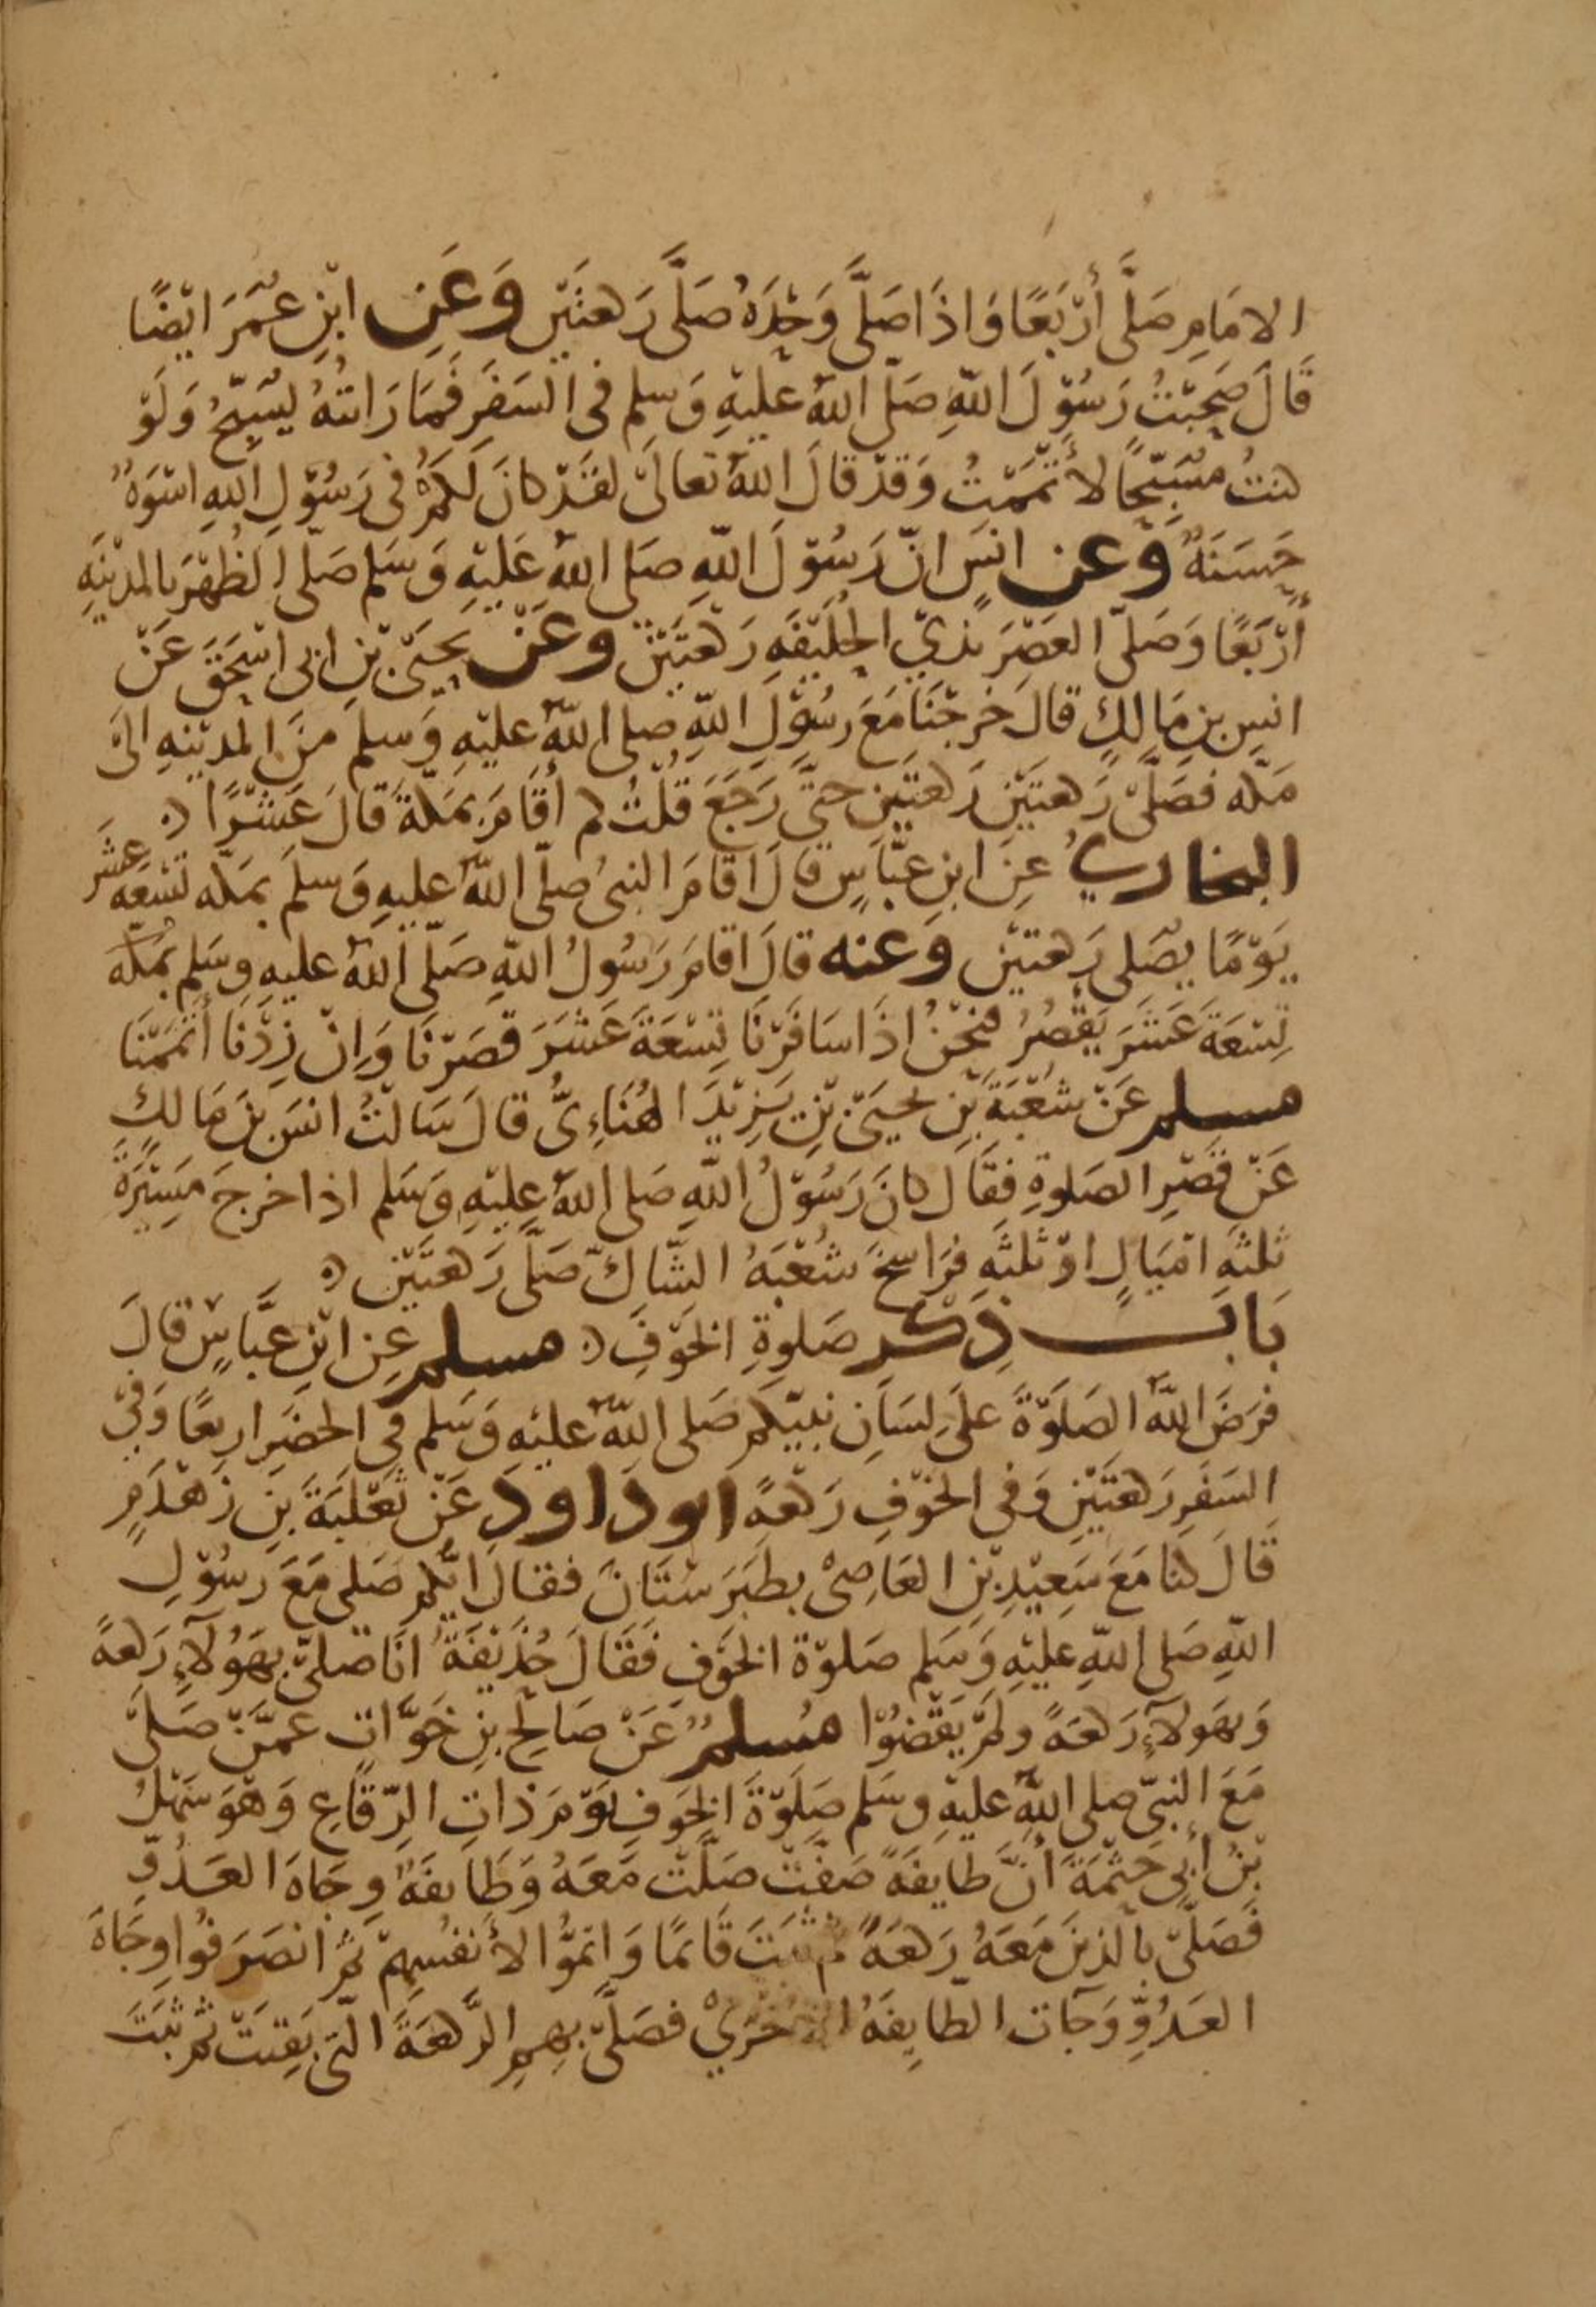 الامَامِ صَلَّى أرْبَعًا وَاذَا صَلَّى وَحْدَهُ صَلَّى رَكعتَيْنِ وَعَنِ ابْنِ عُمَرَ ايْضًا
قَالَ صَحِبْتُ رَسُوْلَ اللهِ صَلّى اللهُ عَليْهِ وَسلم فى السَفَرِ فَمَا رَايتُهُ يُسَبِّحُ وَلَوْ
كنتُ مُسَبّحًا لأتْمَمْتُ وَقَدْ قالَ اللهُ تعالَى لقَدْ كانَ لَكُمْ فى رَسُوْلِ اللهِ اسْوَةٌ
حَسَنَةٌ وَعن انَسٍ انّ رَسُوْلَ اللهِ صَلى اللهُ عَليْهِ وَسَلم صَلّى الظُهْرَ بالمدْيَنِهِ
أرْبَعًا وَصَلّى العَصْرَ بذي الحُلَيْفَهِ رَكْعَتَيْنِ وعَنْ يحيَىْ بْنِ ابى اسْحَقَ عَنْ
انسِ بنِ مَالكٍ قالَ خرجْنَا مَعَ رسُوْلِ اللهِ صلى اللهُ عليْهِ وَسلم منَ المديْنهِ الىَ
مَكّه فصَلَّىْ رَكعتَيْنِ رَكعتَيْنِ حتَّى رَجَعَ قُلْتُ كم أقَامَ بمَكّةَ قالَ عَشْرًا ۞
البخاري عنِ ابنِ عبّاسٍ قالَ اقامَ النبىُ صلّى اللهُ عليهِ وَسلمَ بمَكّه تسْعَه عشَر
يَوْمًا يصَلى رَكعتيْن وَعنه قالَ اقامَ رَسُولُ اللهِ صَلّى اللهُ عليهِ وسَلم بمَكّه
تِسْعَةَ عَشَرَ يَقْصُرُ فنحْنُ اذَا سَافَرْنَا تِسْعَةَ عَشَرَ قصَرْنَا وَانْ زِدْنَا أتمَمْنَا
مسلم عَنْ شعْبَةَ بْنِ يحيَىْ بْنِ يَزِيْدَ الهُنَاءِىُّ قالَ سَالتُ انسَ بنَ مَالكٍ
عَنْ قصْرِ الصَلوةِ فقَال كانَ رَسُوْلُ اللهِ صَلى اللهُ عليْهِ وَسَلم اذا خرجَ مَسِيْرَةَ
ثلثهِ امْيَالٍ اوْ ثلثَهِ فرَاسخَ شعْبَهُ الشّاكّ صَلَّى رَكعتَيْنِ ۞
بَابُ ذِكْرِ صَلوةِ الخَوْفِ ۞ مسلم عنِ ابْنِ عبَّاسٍ قالَ
فرَضَ اللهُ الصَلَوْةَ علَى لسَانِ نبيّكم صَلى اللهُ عليْهِ وَسَلم فى الحضَرِ اربعًا وَفى
السَفَرِ رَكعتَيْنِ وَفى الخوْفِ رَكْعَةً ابوداودَ عَنْ ثَعْلَبَةَ بنِ زَهْدَمٍ
قَالَ كنا مَعَ سَعِيْدِ بْنِ العَاصِىْ بطَبَرَسْتَانَ فقالَ ايّكم صَلى مَعَ رسُوْلِ
اللهِ صَلى اللهُ عليْهِ وَسَلم صَلوْةَ الخوْفِ فَقَالَ حُذَيْفَةُ انَا فصَلىّ بهَؤُلَاءِ رَكعَةً
وَبهَولَاءِ رَكعَهً ولَمْ يَقْضُوْا مُسلمٌ عَنْ صَالِح بنِ خَوَّاتٍ عمَّنْ صَلىَّ
مَعَ النبىّ صلى اللهُ عليهِ وسَلم صَلَوْةَ الخوَفِ يَوْمَ ذاتِ الرّقاعِ وَهْوَ سَهْلُ
بْنُ أبى حَثْمَةَ أنَّ طايفَةً صَفَّتْ صَلَّتْ مَعَهُ وَطَايفَهٌ وِجَاهَ العَدُوِّ
فَصَلَّى بالذينَ مَعَهُ رَكعَةً ثم ثبَتَ قَائمًا وَاتمُّوا لأنفُسِهِمْ ثمّ انصَرَفُوا وِجَاهَ
العَدُوِّ وَجَآت الطّايِفَهُ الأخرَىْ فصَلَّى بِهِمِ الرَّكعَةَ الّتى بَقِيَتْ ثم ثَبَتَ